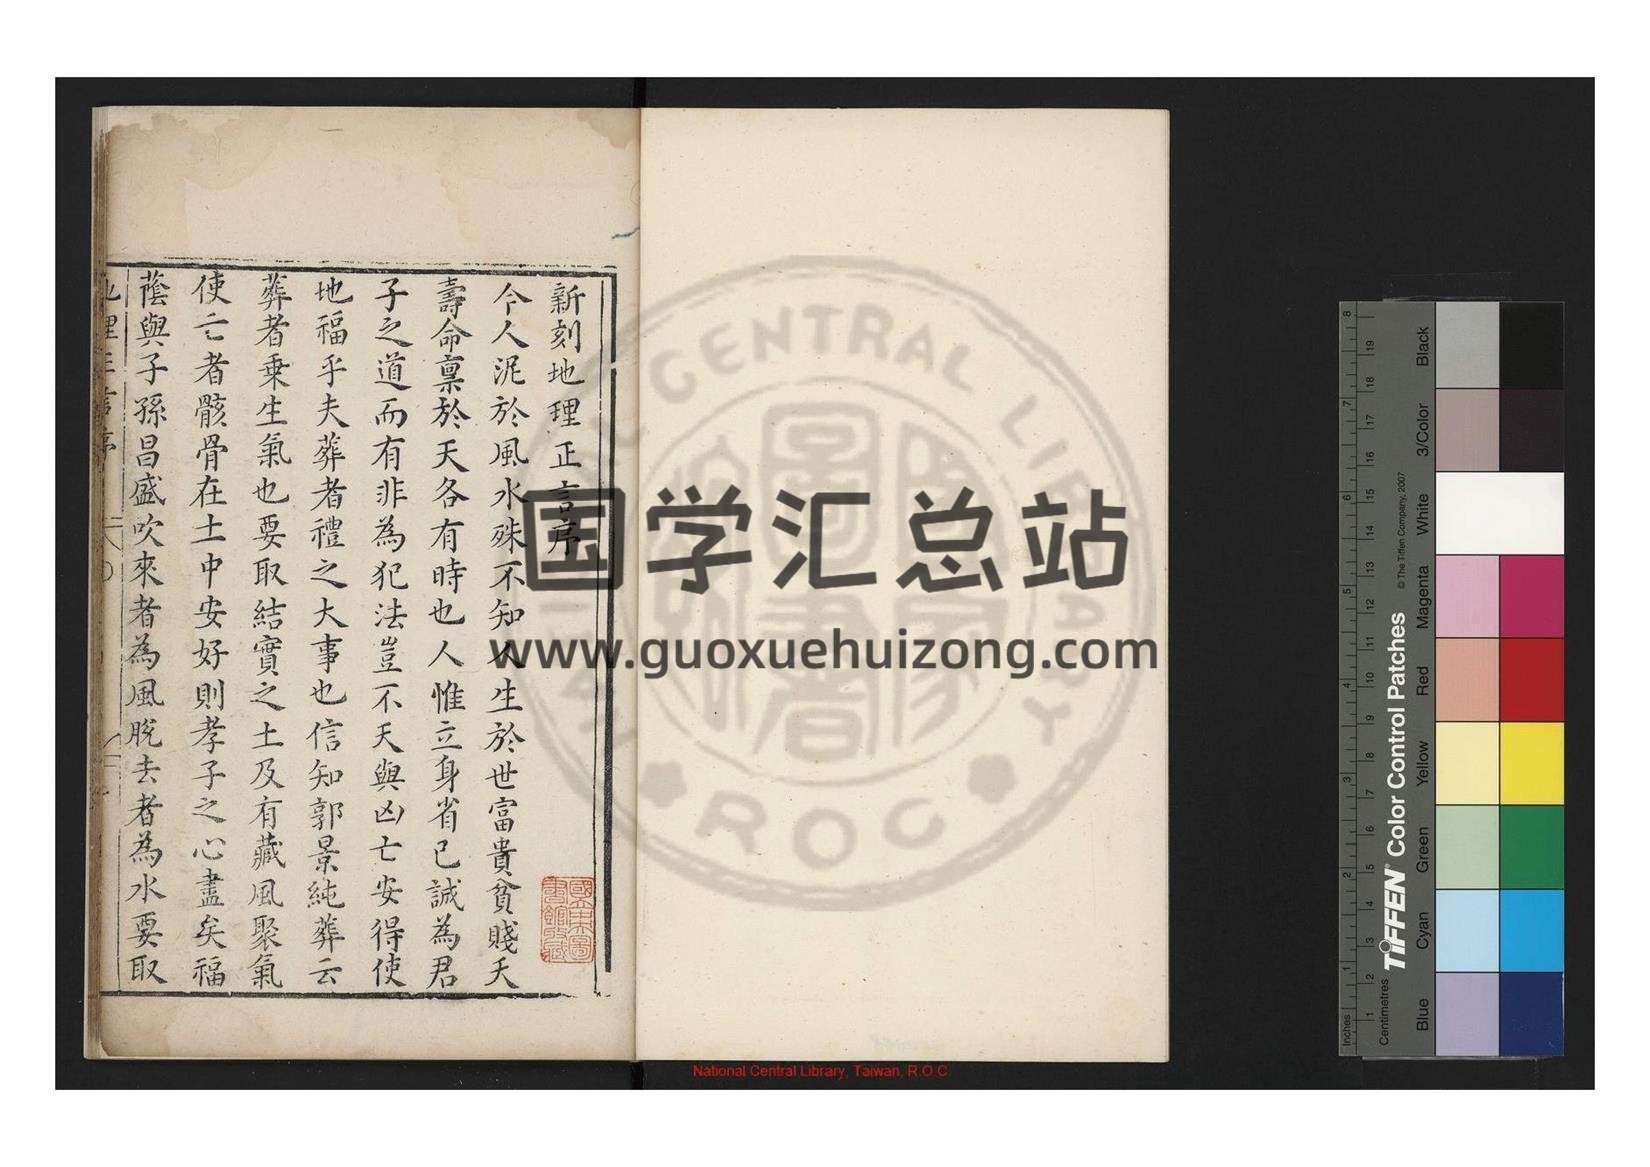 新刻地理正言序
今人泥於風水殊不知人生於世富貴貧賤夭
壽命禀於天各有時也人惟立身省己誠為君
子之道而有非為犯法豈不天與凶亡安得使
地福乎夫葬者禮之大事也信知郭景純葬云
葬者乗生氣也要取結實之土及有藏風聚氣
使亡者骸骨在土中安好則孝子之心盡矣福
蔭與子孫昌盛吹來者為風脫去者為水要取
地理正言序
國立中央圖書館收藏
国学汇总站
www.guoxuehuizong.com
CENTRAL LIBRARY
ROC
National Central Library, Taiwan, R.O.C.
Inches
Centimetres
TIFFEN® Color Control Patches
© The Tiffen Company, 2007
Blue
Cyan
Green
Yellow
Red
Magenta
White
3/Color
Black
1 2 3 4 5 6 7 8
1 2 3 4 5 6 7 8 9 10 11 12 13 14 15 16 17 18 19